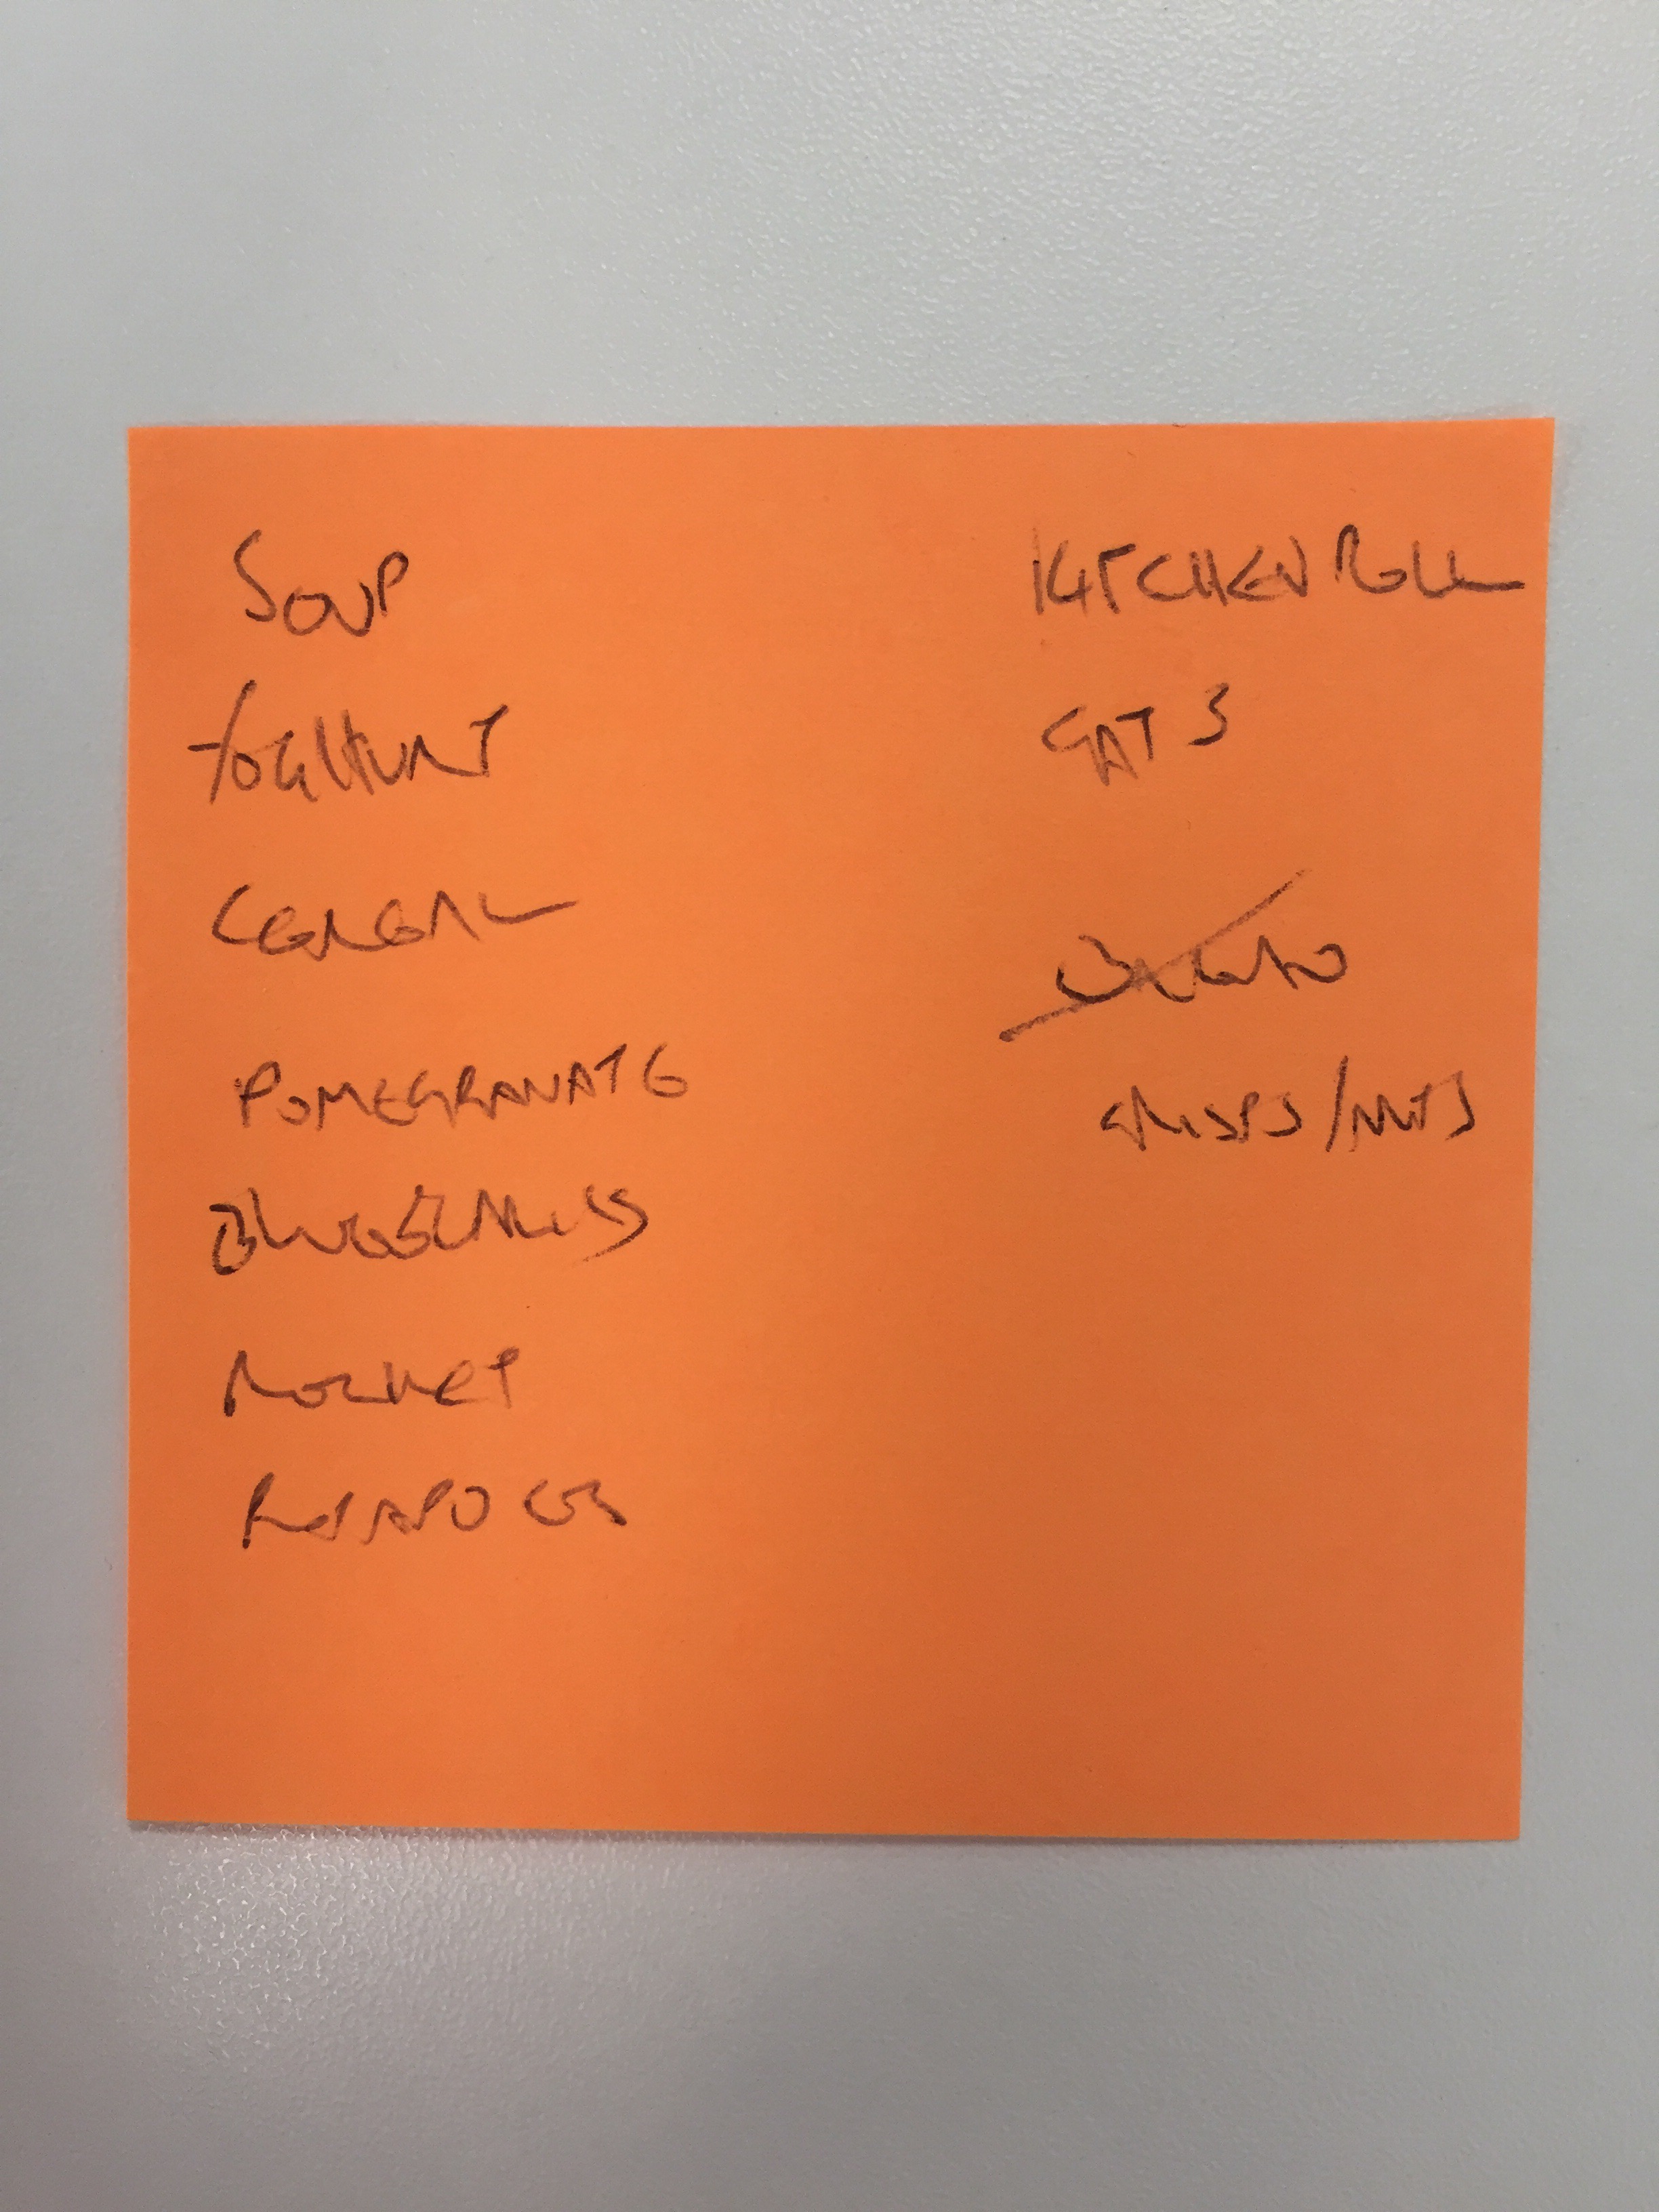 SOUP
YOGHURT
CEREAL
POMEGRANATE
BLUEBERRIES
ROCKET
POTATOES
KITCHEN ROLL
CATS
BREAD
CRISPS/NUTS